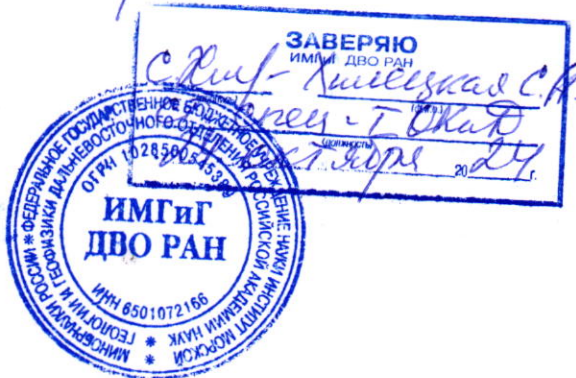 ЗАВЕРЯЮ
ИМГиГ ДВО РАН
(должность)
октября 20 24 г.
МИНОБРНАУКИ РОССИИ * ФЕДЕРАЛЬНОЕ ГОСУДАРСТВЕННОЕ БЮДЖЕТНОЕ УЧРЕЖДЕНИЕ НАУКИ ИНСТИТУТ МОРСКОЙ
ГЕОЛОГИИ И ГЕОФИЗИКИ ДАЛЬНЕВОСТОЧНОГО ОТДЕЛЕНИЯ РОССИЙСКОЙ АКАДЕМИИ НАУК *
ОГРН
ИМГиГ
ДВО РАН
ИНН 6501072166